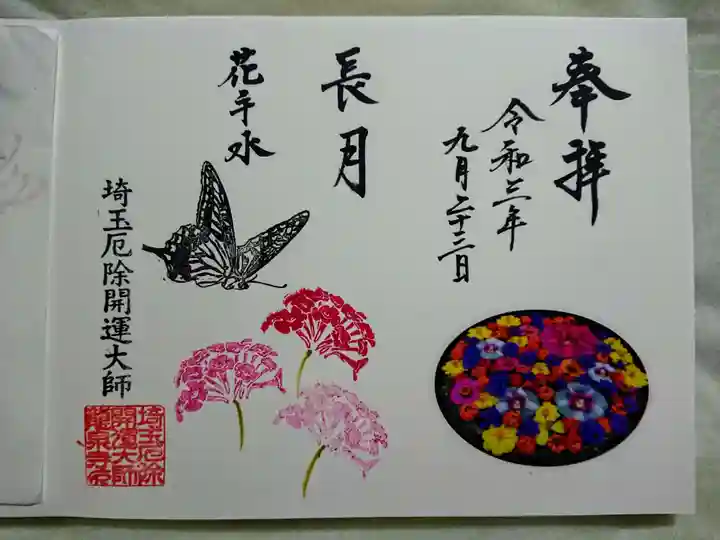 奉拝
令和三年
九月二十三日
長月
花手水
埼玉厄除開運大師
埼玉厄除
開運大師
龍泉寺印